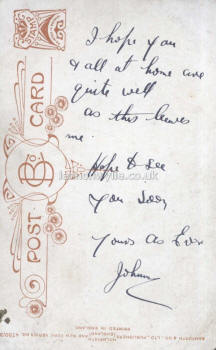 I hope you
& all at home are
quite well
as this leaves
me.
Hope to see
you soon
yours as Ever
Johnny
POST CARD
BAMFORTH & CO., LTD., PUBLISHERS
PRINTED IN ENGLAND